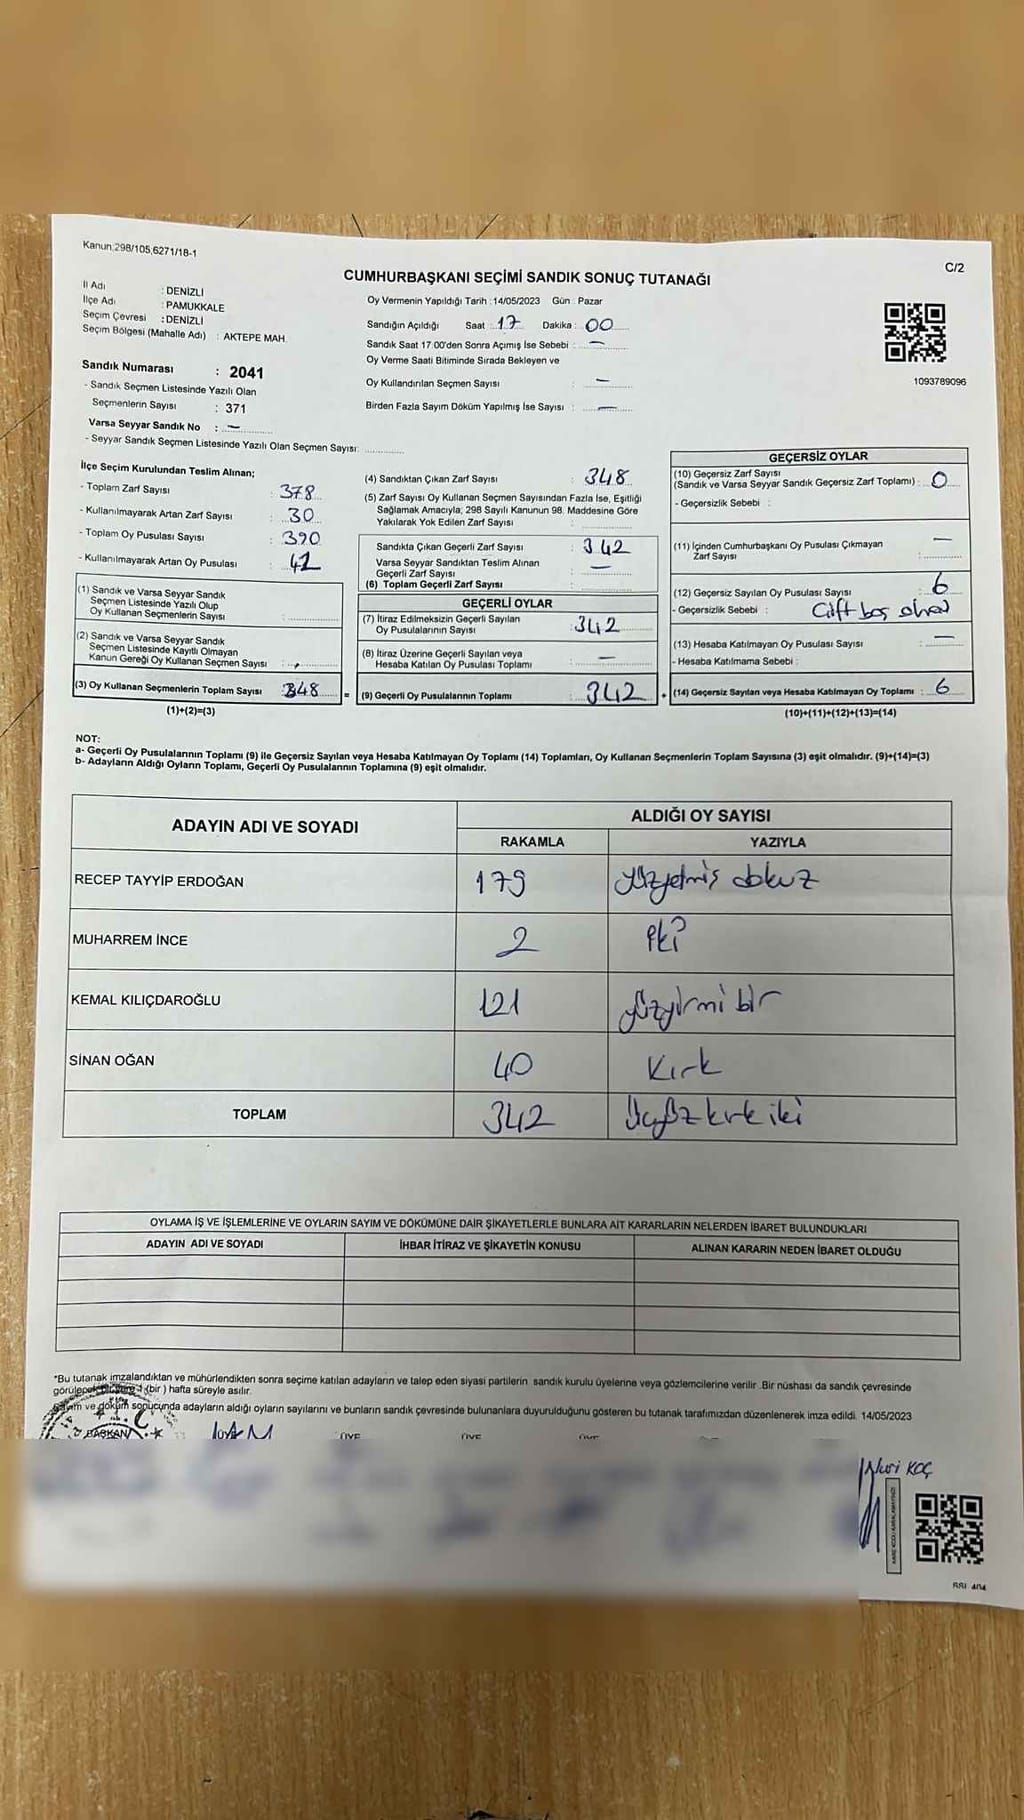 Kanun:298/105,6271/18-1
C/2
CUMHURBAŞKANI SEÇİMİ SANDIK SONUÇ TUTANAĞI
İl Adı : DENİZLİ
İlçe Adı : PAMUKKALE
Seçim Çevresi : DENİZLİ
Seçim Bölgesi (Mahalle Adı) : AKTEPE MAH.
Oy Vermenin Yapıldığı Tarih :14/05/2023 Gün : Pazar
Sandığın Açıldığı Saat : 17 Dakika : 00
Sandık Saat 17:00'den Sonra Açımış İse Sebebi : —
Oy Verme Saati Bitiminde Sırada Bekleyen ve
Oy Kullandırılan Seçmen Sayısı : —
Birden Fazla Sayım Döküm Yapılmış İse Sayısı : —
1093789096
Sandık Numarası : 2041
- Sandık Seçmen Listesinde Yazılı Olan
Seçmenlerin Sayısı : 371
Varsa Seyyar Sandık No : —
- Seyyar Sandık Seçmen Listesinde Yazılı Olan Seçmen Sayısı:
İlçe Seçim Kurulundan Teslim Alınan;
- Toplam Zarf Sayısı : 378
- Kullanılmayarak Artan Zarf Sayısı : 30
- Toplam Oy Pusulası Sayısı : 390
- Kullanılmayarak Artan Oy Pusulası : 42
(1) Sandık ve Varsa Seyyar Sandık
Seçmen Listesinde Yazılı Olup
Oy Kullanan Seçmenlerin Sayısı :
(2) Sandık ve Varsa Seyyar Sandık
Seçmen Listesinde Kayıtlı Olmayan
Kanun Gereği Oy Kullanan Seçmen Sayısı :
(3) Oy Kullanan Seçmenlerin Toplam Sayısı : 348 =
(1)+(2)=(3)
(4) Sandıktan Çıkan Zarf Sayısı : 348
(5) Zarf Sayısı Oy Kullanan Seçmen Sayısından Fazla İse, Eşitliği
Sağlamak Amacıyla, 298 Sayılı Kanunun 98. Maddesine Göre
Yakılarak Yok Edilen Zarf Sayısı :
Sandıkta Çıkan Geçerli Zarf Sayısı : 342
Varsa Seyyar Sandıktan Teslim Alınan
Geçerli Zarf Sayısı : —
(6) Toplam Geçerli Zarf Sayısı :
GEÇERLİ OYLAR
(7) İtiraz Edilmeksizin Geçerli Sayılan
Oy Pusulalarının Sayısı : 342
(8) İtiraz Üzerine Geçerli Sayılan veya
Hesaba Katılan Oy Pusulası Toplamı : —
(9) Geçerli Oy Pusulalarının Toplamı : 342 +
GEÇERSİZ OYLAR
(10) Geçersiz Zarf Sayısı
(Sandık ve Varsa Seyyar Sandık Geçersiz Zarf Toplamı) : 0
- Geçersizlik Sebebi :
(11) İçinden Cumhurbaşkanı Oy Pusulası Çıkmayan
Zarf Sayısı : —
(12) Geçersiz Sayılan Oy Pusulası Sayısı : 6
- Geçersizlik Sebebi : Çift boş
(13) Hesaba Katılmayan Oy Pusulası Sayısı : —
- Hesaba Katılmama Sebebi :
(14) Geçersiz Sayılan veya Hesaba Katılmayan Oy Toplamı : 6
(10)+(11)+(12)+(13)=(14)
NOT:
a- Geçerli Oy Pusulalarının Toplamı (9) ile Geçersiz Sayılan veya Hesaba Katılmayan Oy Toplamı (14) Toplamları, Oy Kullanan Seçmenlerin Toplam Sayısına (3) eşit olmalıdır. (9)+(14)=(3)
b- Adayların Aldığı Oyların Toplamı, Geçerli Oy Pusulalarının Toplamına (9) eşit olmalıdır.
ADAYIN ADI VE SOYADI
ALDIĞI OY SAYISI
RAKAMLA YAZIYLA
RECEP TAYYİP ERDOĞAN 179 yüzyetmiş dokuz
MUHARREM İNCE 2 iki
KEMAL KILIÇDAROĞLU 121 yüzyirmi bir
SİNAN OĞAN 40 Kırk
TOPLAM 342 Üçyüzkırkiki
OYLAMA İŞ VE İŞLEMLERİNE VE OYLARIN SAYIM VE DÖKÜMÜNE DAİR ŞİKAYETLERLE BUNLARA AİT KARARLARIN NELERDEN İBARET BULUNDUKLARI
ADAYIN ADI VE SOYADI İHBAR İTİRAZ VE ŞİKAYETİN KONUSU ALINAN KARARIN NEDEN İBARET OLDUĞU
*Bu tutanak imzalandıktan ve mühürlendikten sonra seçime katılan adayların ve talep eden siyasi partilerin sandık kurulu üyelerine veya gözlemcilerine verilir. Bir nüshası da sandık çevresinde
görülecek bir yere 1 (bir ) hafta süreyle asılır.
Sayım ve döküm sonucunda adayların aldığı oyların sayılarını ve bunların sandık çevresinde bulunanlara duyurulduğunu gösteren bu tutanak tarafımızdan düzenlenerek imza edildi. 14/05/2023
BAŞKAN ÜYE ÜYE ÜYE
KOÇ